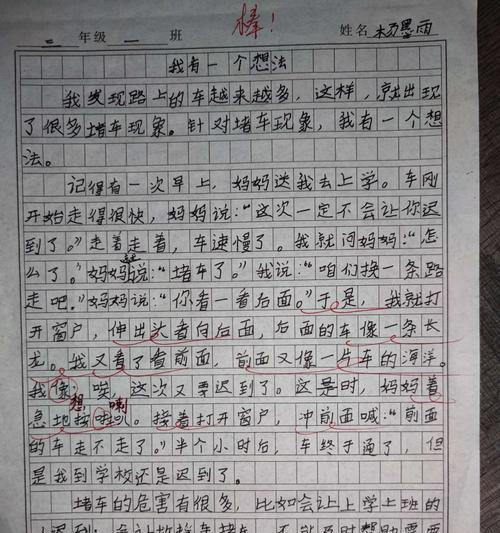 棒！
三 年级 一 班 姓名 杨墨雨
我有一个想法
我发现路上的车越来越多，这样，就出现
了很多堵车现象。针对堵车现象，我有一个想
法。
记得有一次早上，妈妈送我去上学。车刚
开始走得很快，妈妈说：“这次一定不会让你迟
到了。”走着走着，车速慢了。我就问妈妈：“怎
么了。”妈妈说：“堵车了。”我说：“咱们换一条路
走吧。”妈妈说：“你看一看后面。”于是，我就打
开窗户，伸出头看向后面，后面的车像一条长
龙。我又看了看前面，前面又像一片车的海洋。
我像：唉，这次又要迟到了。这是时，妈妈着
想 喇
急地按啦叭。接着打开窗户，冲前面喊：“前面
的车走不走了。”半个小时后，车终于通了，但
是我到学校还是迟到了。
堵车的危害有很多，比如会让上学上班的
人迟到；会让救护车堵车，不能及时帮助需要